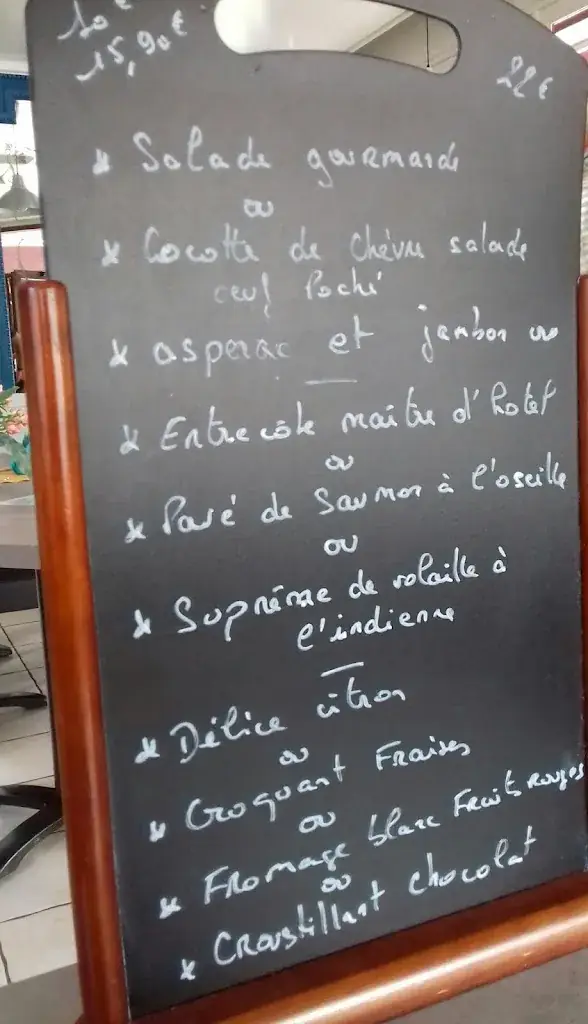 10 €
15,90 €
22 €
* Salade gourmande
ou
* Cocotte de chèvre salade
oeuf Poché
* asperge et jambon ou
* Entrecôte maître d'hotel
ou
* Pavé de Saumon à l'oseille
ou
* Suprême de volaille à
l'indienne
* Délice citron
ou
* Croquant Fraises
ou
* Fromage blanc Fruits rouges
ou
* Croustillant chocolat